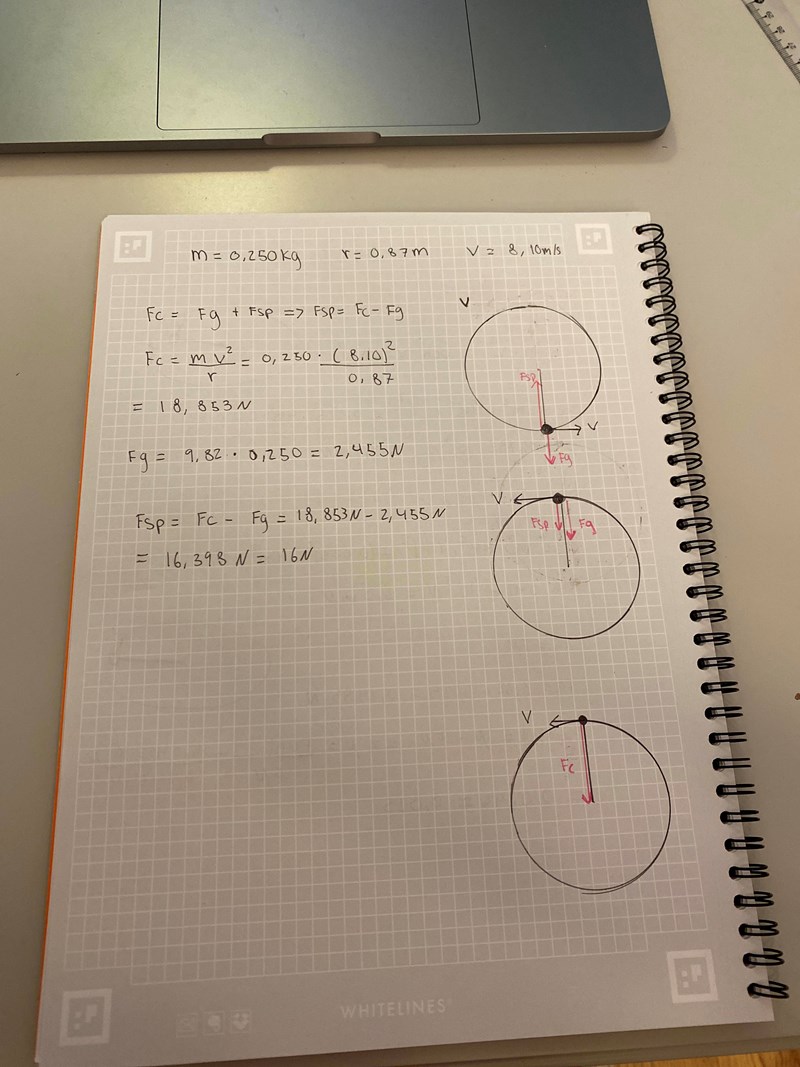 m = 0,250kg r = 0,87m V = 8,10m/s
Fc = Fg + Fsp => Fsp = Fc - Fg
Fc = m v² / r = 0,250 · (8,10)² / 0,87
= 18,853N
Fg = 9,82 · 0,250 = 2,455N
Fsp = Fc - Fg = 18,853N - 2,455N
= 16,398 N = 16N
V
Fsp
V
Fg
V
Fsp Fg
V
Fc
WHITELINES®